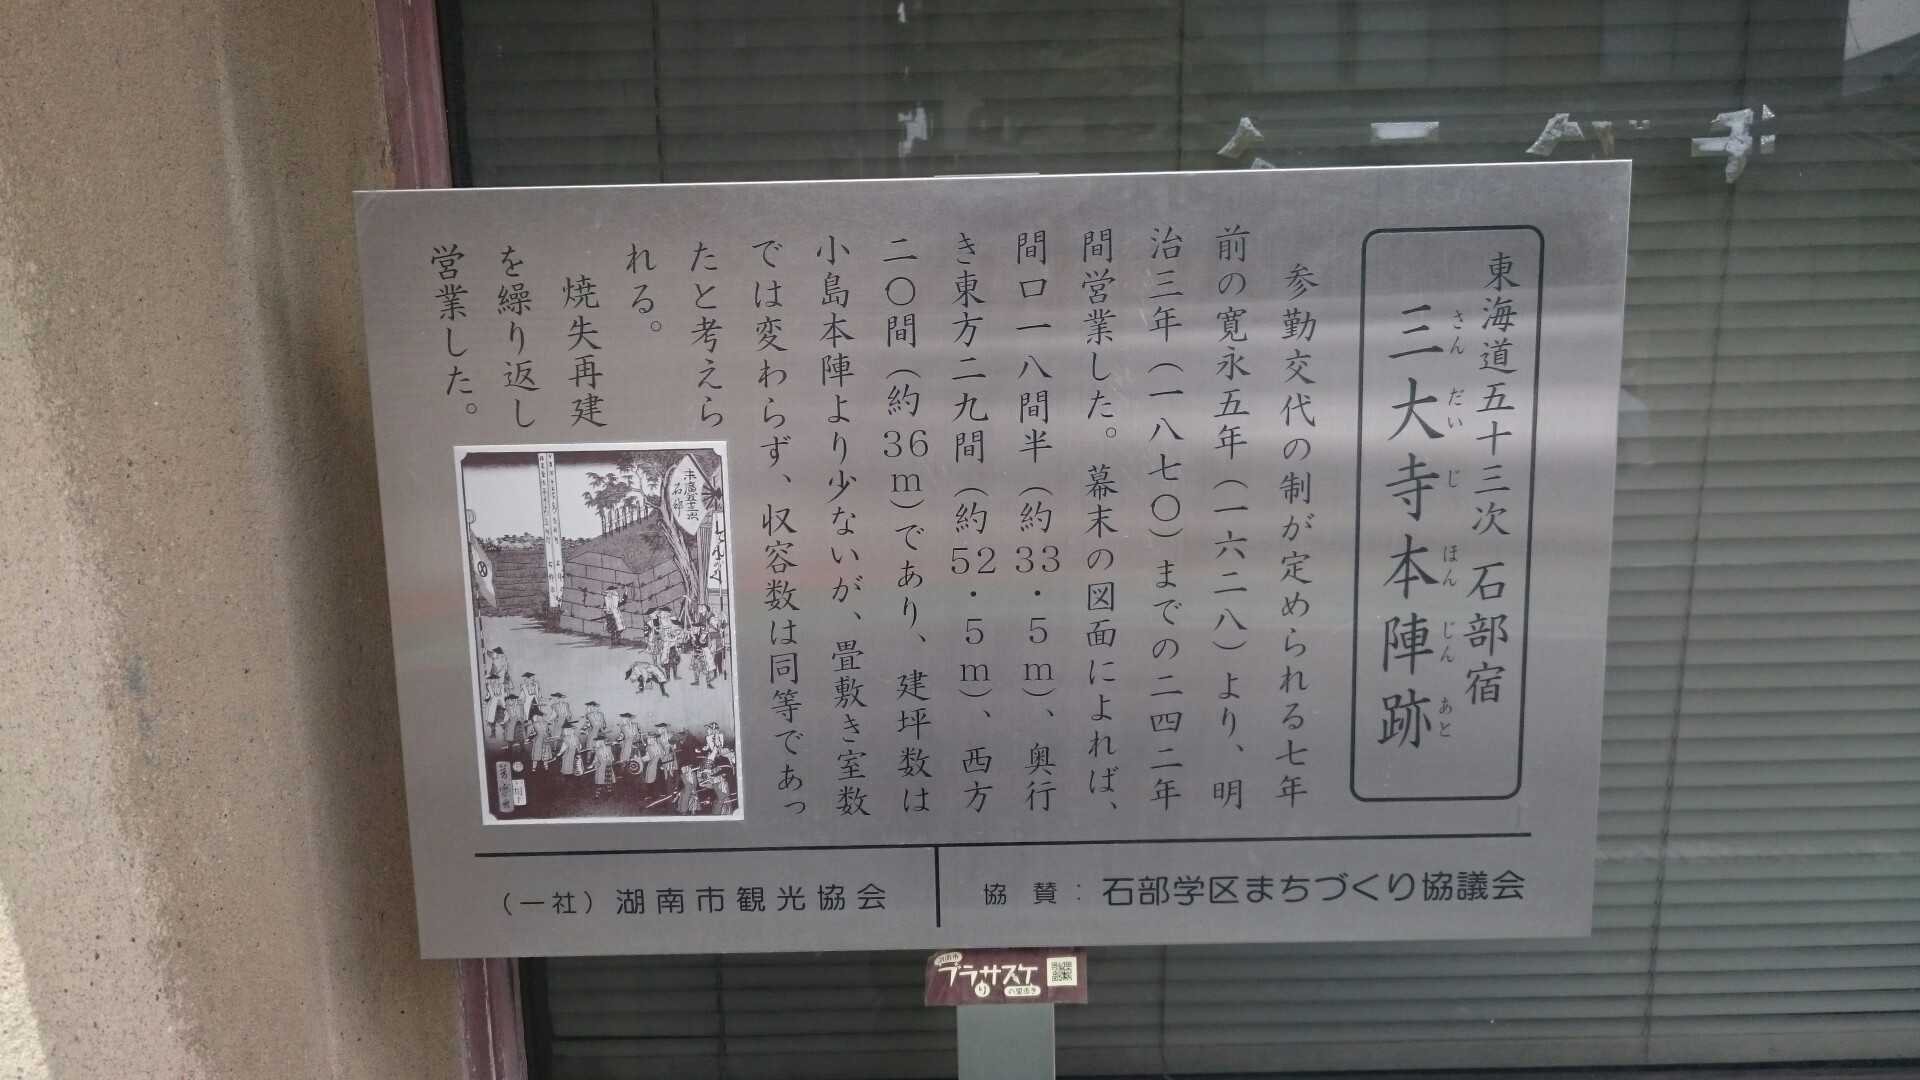 東海道五十三次 石部宿
三大寺本陣跡
さんだいじほんじんあと
参勤交代の制が定められる七年
前の寛永五年（一六二八）より、明
治三年（一八七〇）までの二四二年
間営業した。幕末の図面によれば、
間口一八間半（約33・5m）、奥行
き東方二九間（約52・5m）、西方
二〇間（約36m）であり、建坪数は
小島本陣より少ないが、畳敷き室数
では変わらず、収容数は同等であっ
たと考えら
れる。
焼失再建
を繰り返し
営業した。
協賛：石部学区まちづくり協議会
（一社）湖南市観光協会
ブラりサスケ